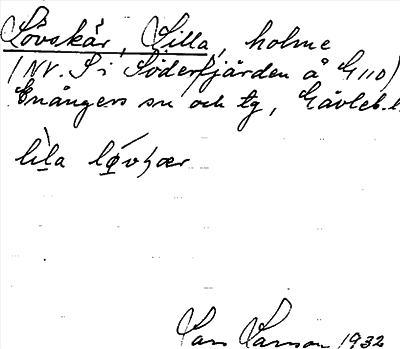 Lövskär, Lilla, holme
(NV. S i Söderfjärden å G110)
Enångers sn och tg, Gävleb.l.
lıla løvʃær
Lars Larsson 1932